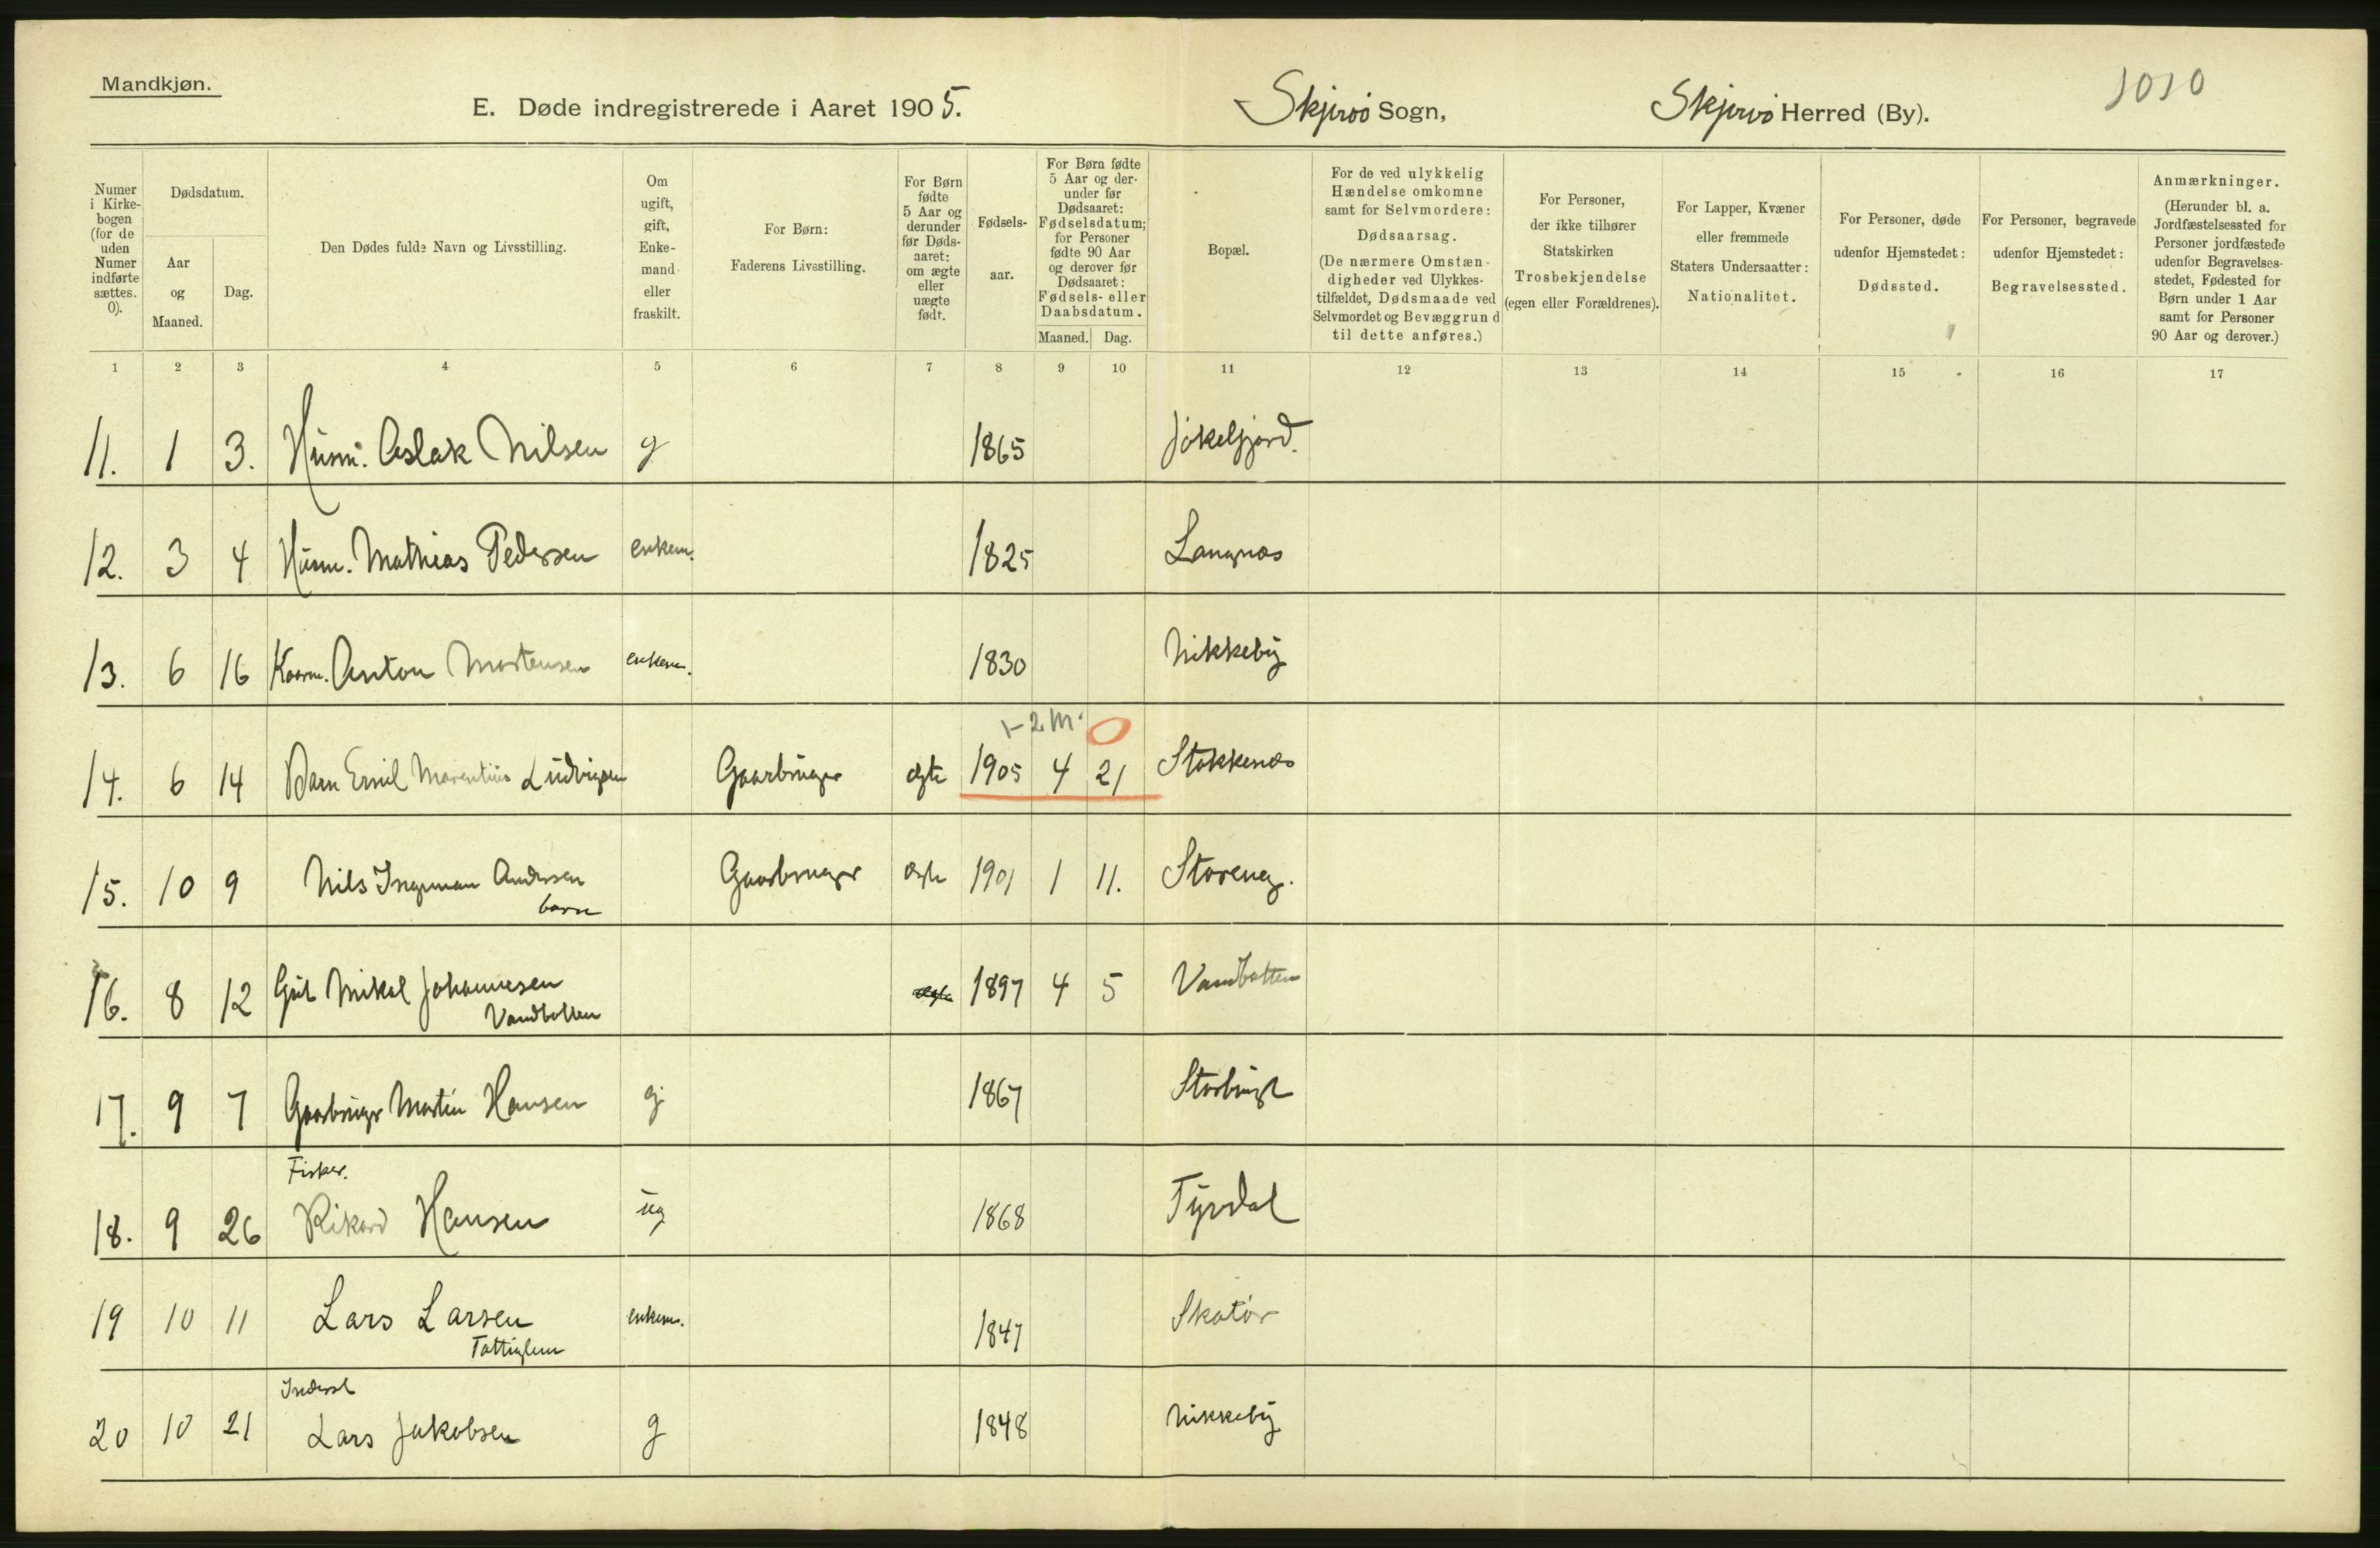 Mandkjøn.
E. Døde indregistrerede i Aaret 1905. Skjervö Sogn, Skjervö Herred (By). 1010
Numer i Kirkebogen (for de uden Numer indførte sættes. 0).
Dødsdatum.
Aar og Maaned.
Dag.
Den Dødes fulde Navn og Livsstilling.
Om ugift, gift, Enkemand eller fraskilt.
For Børn:
Faderens Livsstilling.
For Børn fødte 5 Aar og derunder før Dødsaaret: om ægte eller uægte født.
Fødselsaar.
For Børn fødte 5 Aar og derunder før Dødsaaret: Fødselsdatum; for Personer fødte 90 Aar og derover før Dødsaaret: Fødsels- eller Daabsdatum.
Maaned. Dag.
Bopæl.
For de ved ulykkelig Hændelse omkomne samt for Selvmordere: Dødsaarsag. (De nærmere Omstændigheder ved Ulykkestilfældet, Dødsmaade ved Selvmordet og Bevæggrund til dette anføres.)
For Personer, der ikke tilhører Statskirken Trosbekjendelse (egen eller Forældrenes).
For Lapper, Kvæner eller fremmede Staters Undersaatter: Nationalitet.
For Personer, døde udenfor Hjemstedet: Dødssted.
For Personer, begravede udenfor Hjemstedet: Begravelsessted.
Anmærkninger. (Herunder bl. a. Jordfæstelsessted for Personer jordfæstede udenfor Begravelsesstedet, Fødested for Børn under 1 Aar samt for Personer 90 Aar og derover.)
1 2 3 4 5 6 7 8 9 10 11 12 13 14 15 16 17
11. 1 3. Husm. Aslak Nilsen g 1865 Jökelfjord.
12. 3 4 Husm. Mathias Pedersen enkem. 1825 Langnæs
13. 6 16 Kaarm. Anton Mortensen enkem. 1830 Nikkeby
1-2 M. 0
14. 6 14 Barn Emil Marentius Ludvigsen Gaarbruger ægte 1905 4 21 Stokkenæs
15. 10 9 Nils Ingeman Andersen Gaarbruger ægte 1901 1 11. Storeng.
barn
16. 8 12 Gut Mikal Johannesen ægte 1897 4 5 Vandbotten
Vandbotten
17. 9 7 Gaarbruger Martin Hansen g 1867 Storbugt
Fisker.
18. 9 26 Rikard Hansen ug 1868 Tyrdal
19 10 11 Lars Larsen enkem. 1847 Skatör
Fattiglem
Inderst
20 10 21 Lars Jakobsen g 1848 Nikkeby